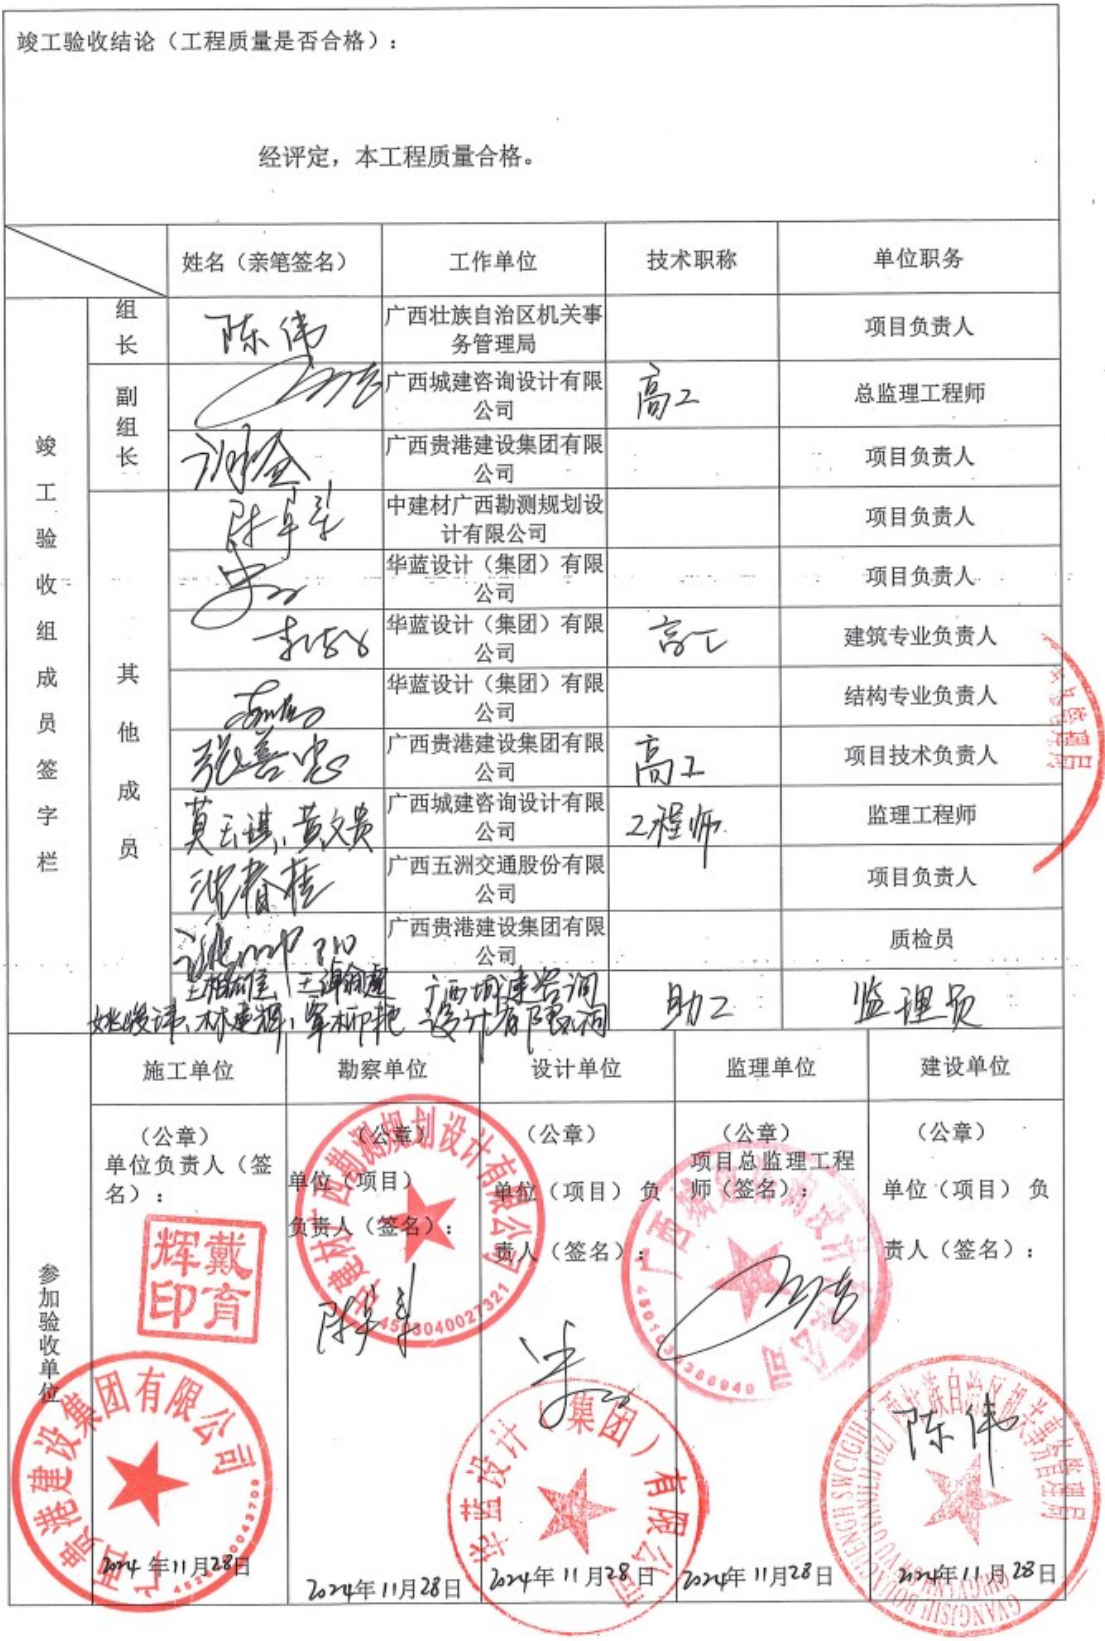 竣工验收结论（工程质量是否合格）：
经评定，本工程质量合格。
姓名（亲笔签名） 工作单位 技术职称 单位职务
竣工验收组成员签字栏
组长 陈伟 广西壮族自治区机关事务管理局 项目负责人
副组长 广西城建咨询设计有限公司 高工 总监理工程师
广西贵港建设集团有限公司 项目负责人
其他成员
中建材广西勘测规划设计有限公司 项目负责人
华蓝设计（集团）有限公司 项目负责人
华蓝设计（集团）有限公司 高工 建筑专业负责人
华蓝设计（集团）有限公司 结构专业负责人
张善忠 广西贵港建设集团有限公司 高工 项目技术负责人
莫云琪、黄文贵 广西城建咨询设计有限公司 工程师 监理工程师
沈春桂 广西五洲交通股份有限公司 项目负责人
广西贵港建设集团有限公司 质检员
林建辉、覃柳艳 广西城建咨询设计有限公司 助工 监理员
参加验收单位
施工单位 勘察单位 设计单位 监理单位 建设单位
（公章）
单位负责人（签名）：
戴育辉印
广西贵港建设集团有限公司
2024年11月28日
（公章）
单位（项目）
负责人（签名）：
中建材广西勘测规划设计有限公司
4503040027321
2024年11月28日
（公章）
单位（项目）负
责人（签名）：
华蓝设计（集团）有限公司
2024年11月28日
（公章）
项目总监理工程师（签名）：
2024年11月28日
（公章）
单位（项目）负
责人（签名）：
陈伟
广西壮族自治区机关事务管理局
2024年11月28日